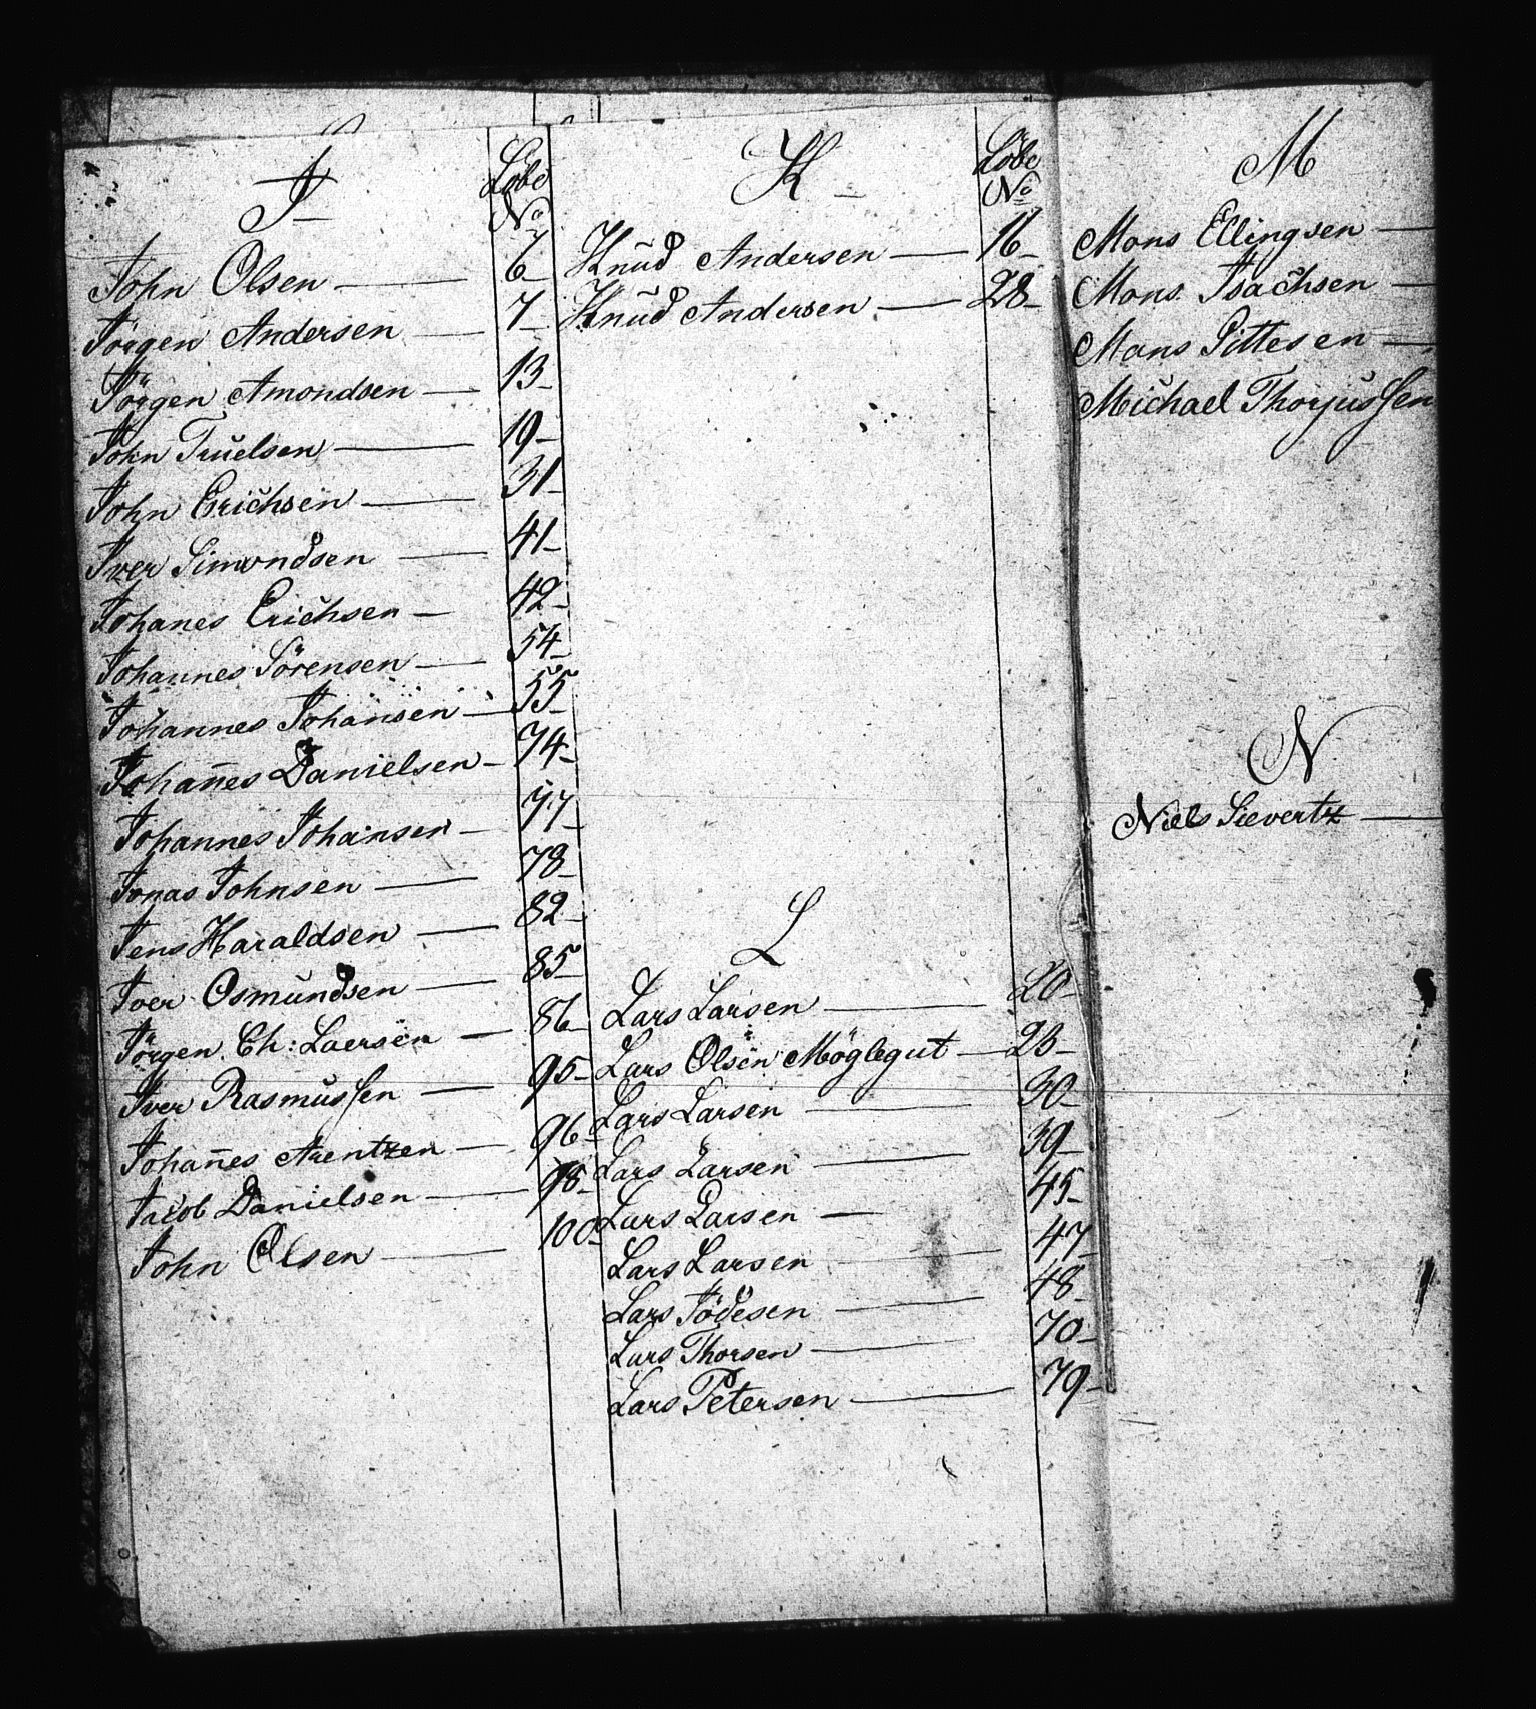 J
Løbe
No
John Olsen — 6
Jörgen Andersen — 7
Jörgen Amondsen — 13
John Truelsen — 19
John Erichsen — 31
Iver Simondsen — 41
Johanes Erichsen — 42
Johannes Sörensen — 54
Johannes Johansen — 55
Johan̄es Danielsen — 74
Johannes Johansen — 77
Jonas Johnsen — 78
Jens Haraldsen — 82
Iver Osmundsen — 85
Jörgen Ch: Laersen — 86
Iver Rasmussen — 95
Johan̄es Arentzen — 96
Jacob Danielsen — 98
John Olsen — 100
K
Løbe
No
Knud Andersen — 16
Knud Andersen — 28
L
Lars Larsen — 20
Lars Olsen Möglegut — 23
Lars Larsen — 30
Lars Larsen — 39
Lars Larsen — 45
Lars Larsen — 47
Lars Jödesen — 48
Lars Thorsen — 70
Lars Petersen — 79
M
Mons Ellingsen —
Mons Isachsen —
Mons Pittesen —
Michael Thorjussen
N
Niels Sievertz —